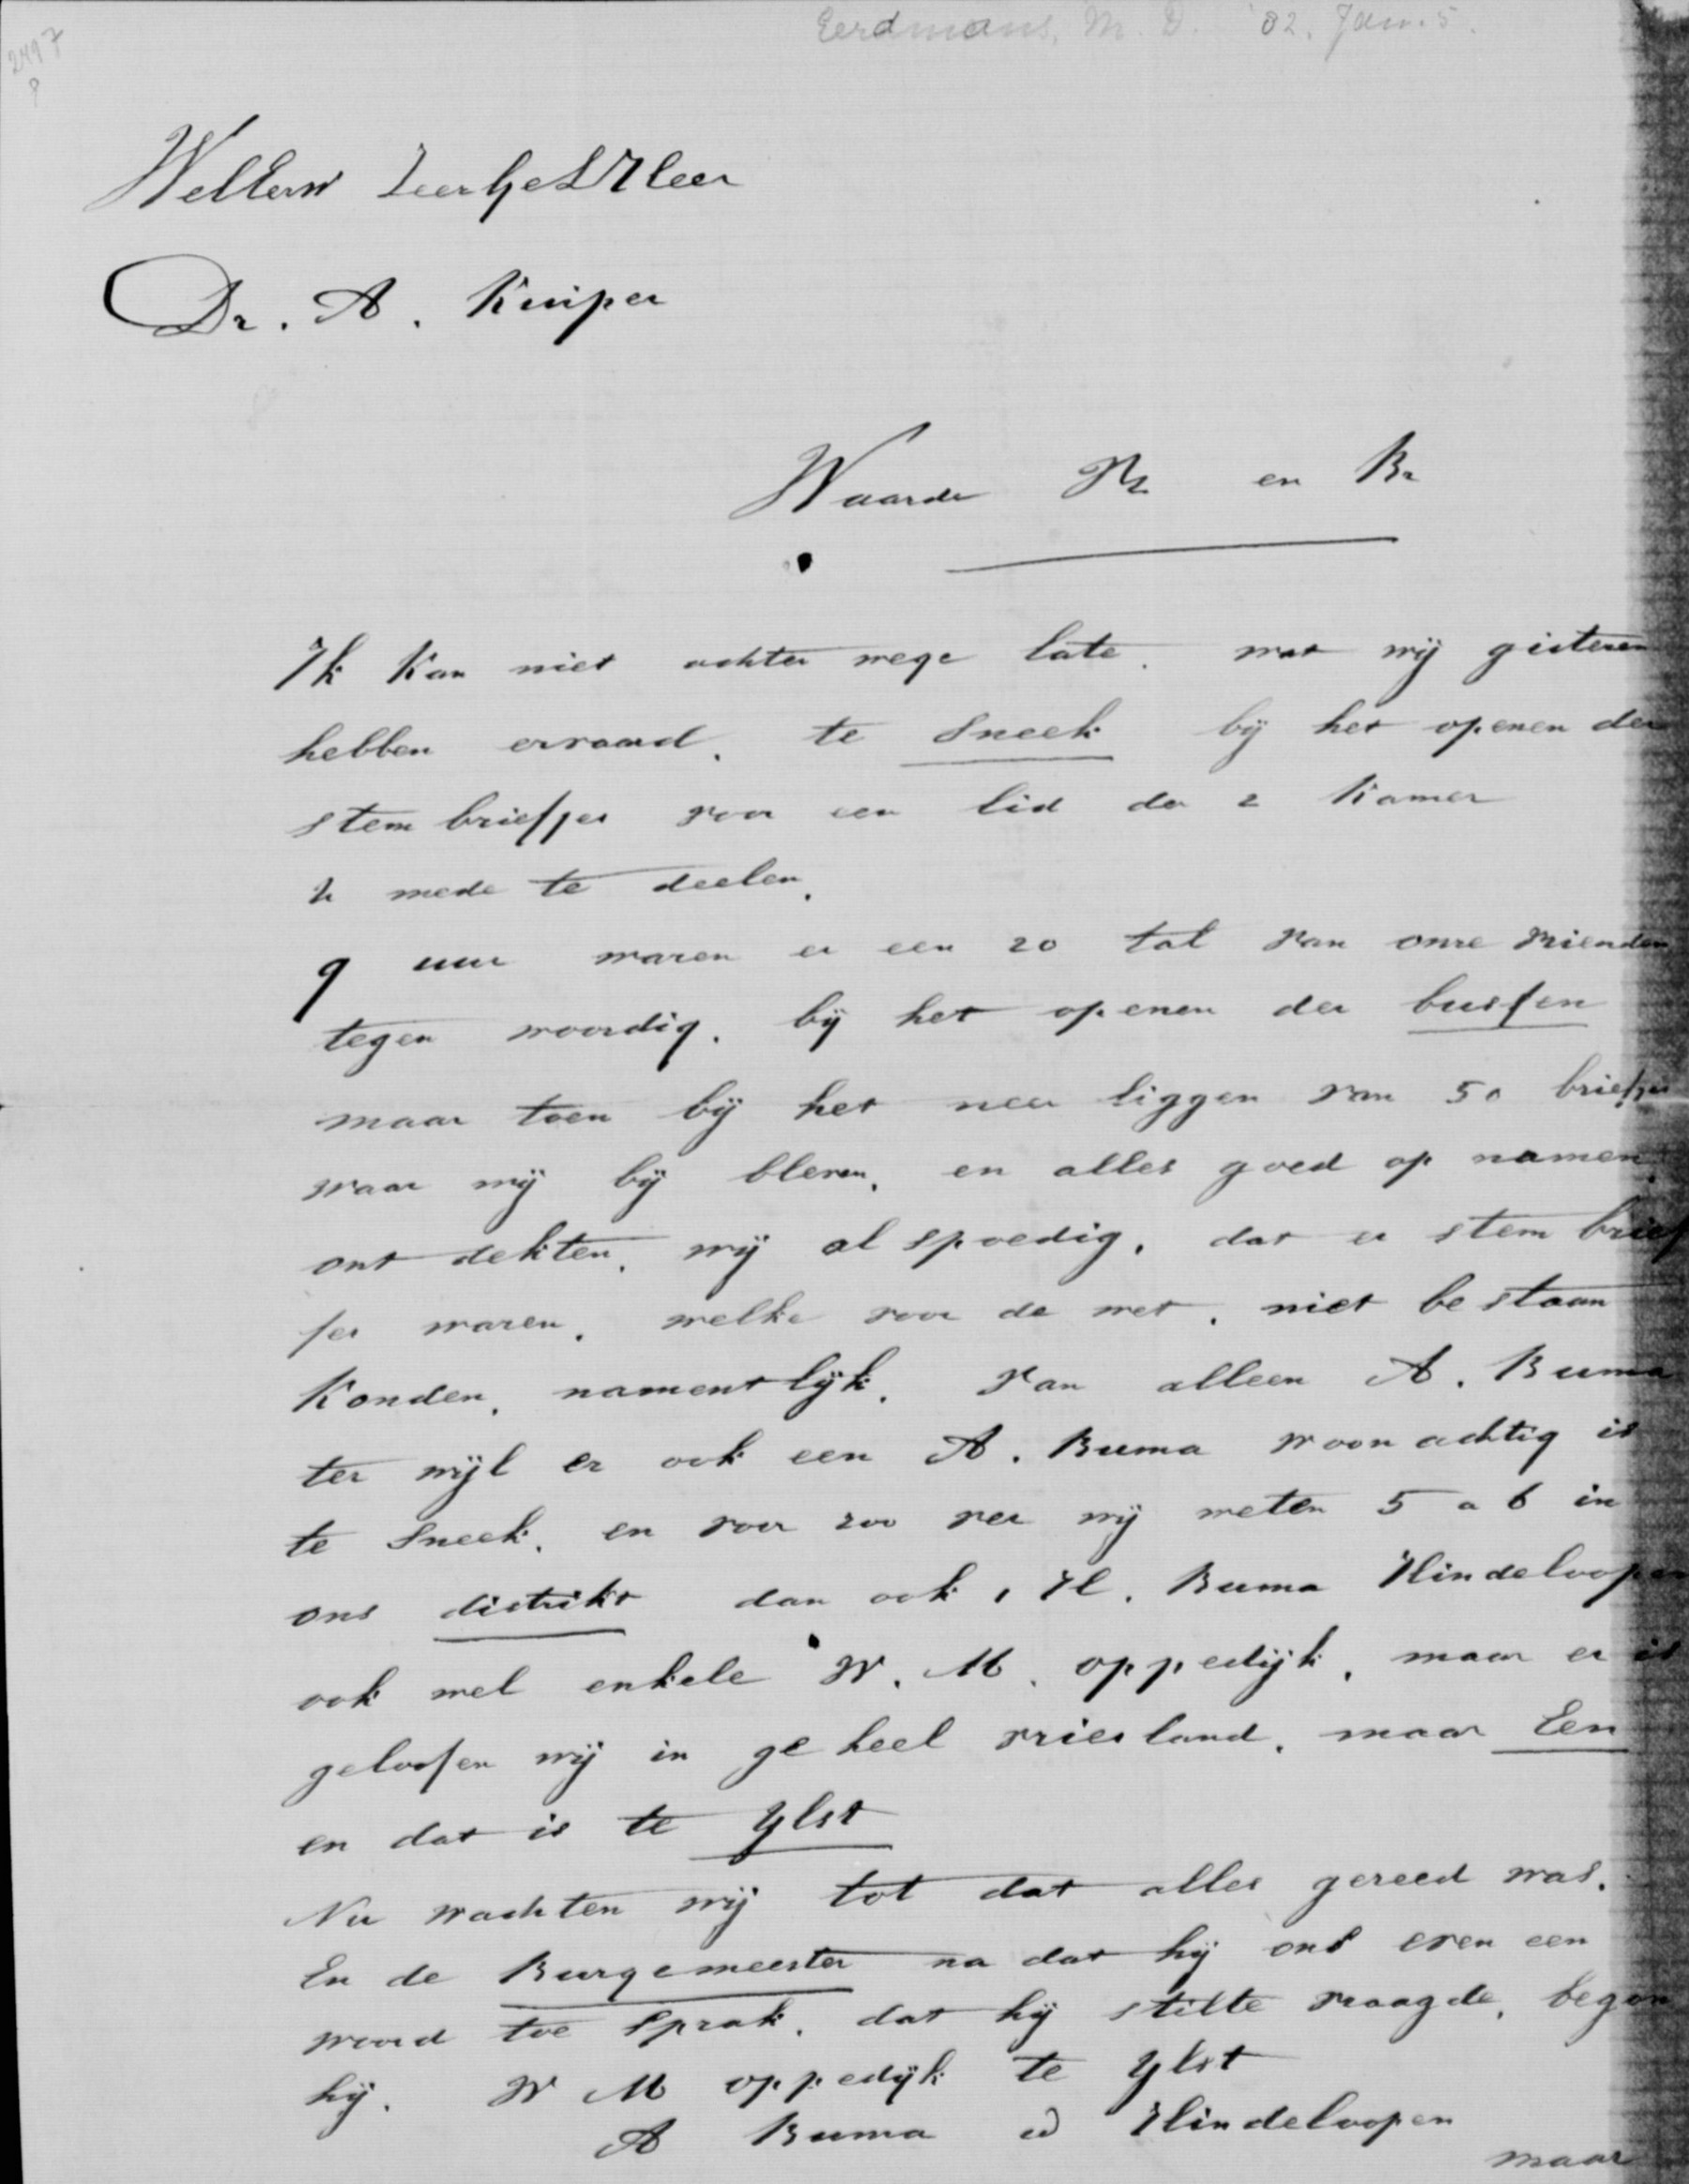 Eerdmans, M. D. '82. Jan. 5.
2497
WelEerw ZeerGel Heer
Dr. A. Kuiper
Waarde Vr en Br
Ik kan niet achter wege late. wat wij gisteren
hebben ervaard. te Sneek bij het openen der
stem briefjes voor een lid der 2 Kamer
U mede te deelen.
9 uur waren er een 20 tal van onse vrienden
tegen woordig. bij het openen der bussen
maar toen bij het neer liggen van 50 briefjes
waar wij bij bleven. en alles goed op namen.
ont dekten. wij al spoedig. dat er stem brief
jes waren. welke voor de wet. niet be staan
konden. nament lijk. van alleen A. Buma
ter wijl er ook een A. Buma woon achtig is
te Sneek. en voor zoo ver wij weten 5 a 6 in
ons distrikt dan ook 1 H. Buma Hindeloopen
ook wel enkele W. M. oppedijk. maar er is
geloofen wij in ge heel vriesland. maar Een
en dat is te Ylst
Nu wachten wij tot dat alles gereed was.
En de Burgemeester na dat hij ons even een
woord toe sprak. dat hij stilte vraagde. begon
hij. W M oppedijk te Ylst
A Buma id Hindeloopen
maar